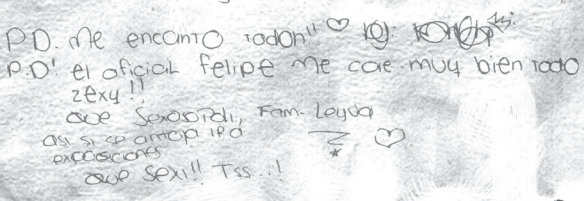 P.D. Me encantO todOn!!
P.D' el oficial felipe Me cae muy bien todo
zexy!!
que Sexosidi, Fam. Leyva
asi si se antoja ir a
exposiciones
que Sexi!! Tss..!